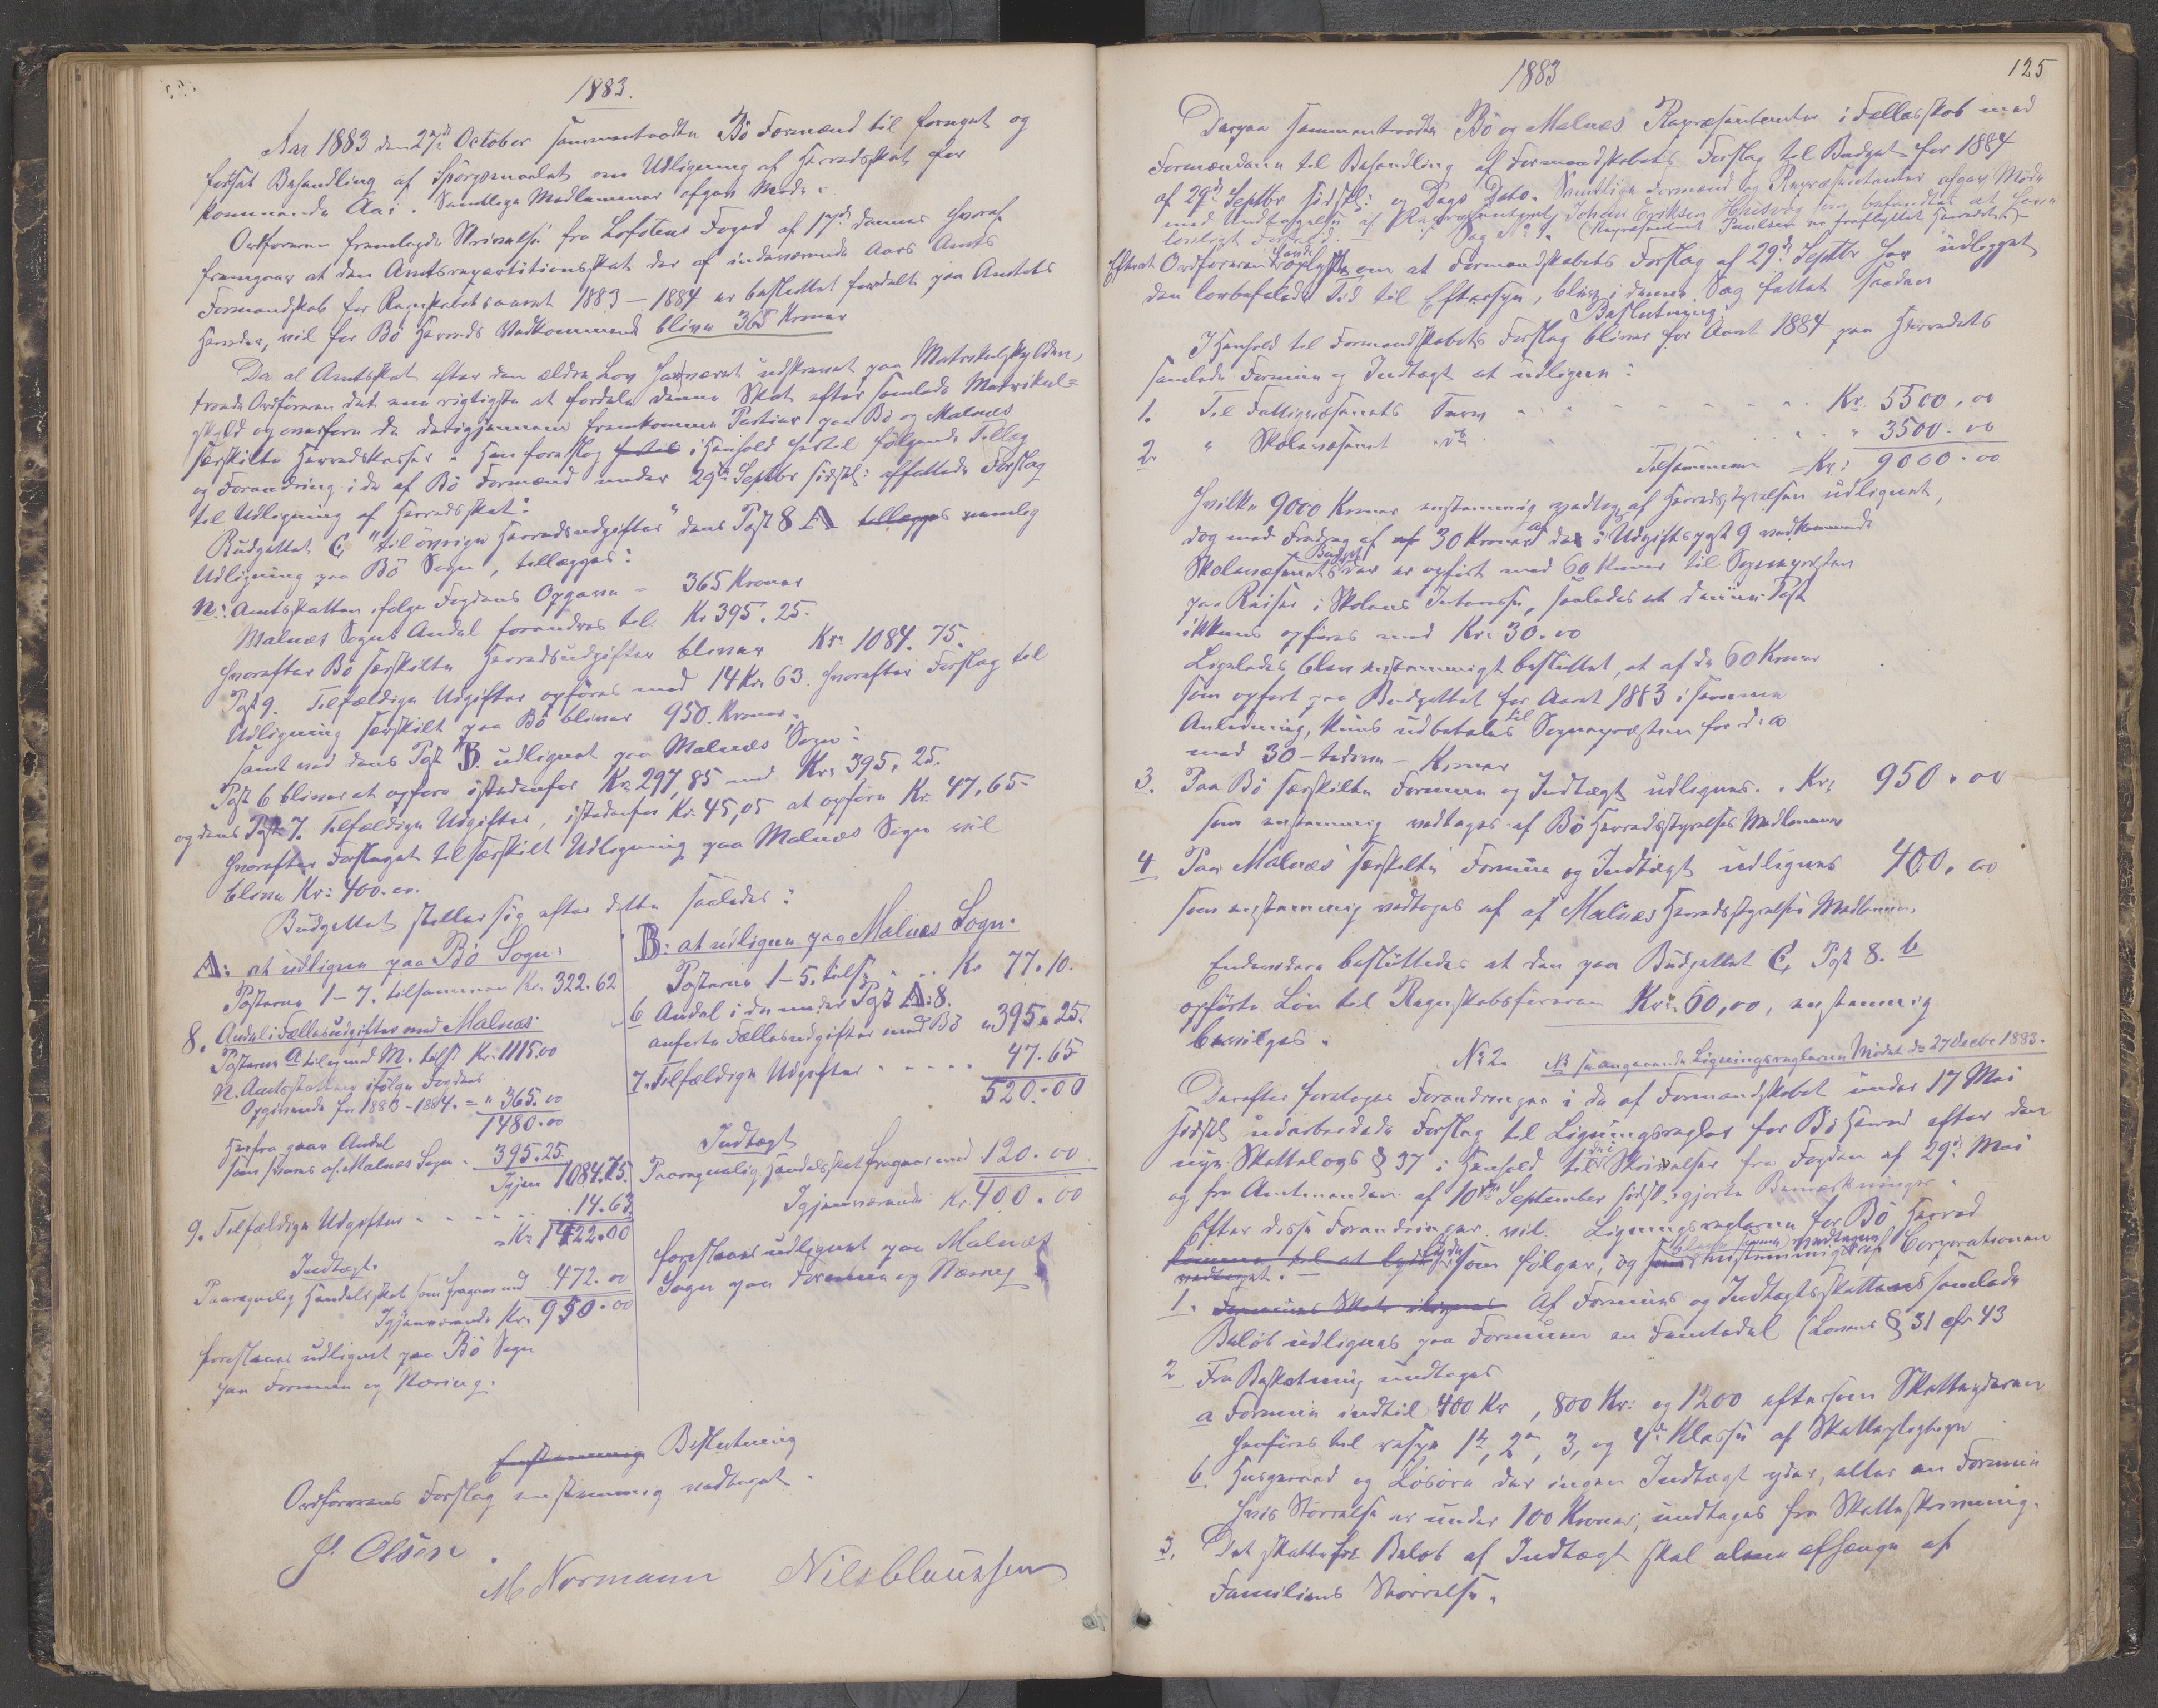 1883.
Aar 1883 den 27de October sammentraadte Bö Formænd til fornyet og
fortsat Behandling af Spörgsmaalet om Udligning af Herredsskat for
kommende Aar. Samtlige Medlemmer afgav Møde.
Ordføreren fremlagde Skrivelse fra Lofotens Foged af 17de dennes hvoraf
fremgaar at den Amtsrepartitionsskat der af indeværende Aars Amts
Formandskab for Regnskabsaaret 1883–1884 er besluttet fordelt paa Amtets
Herreder, vil for Bö Herreds Vedkommende blive 365 Kroner
Da al Amtsskat efter den ældre Lov har været udskrevet paa Matrikulskylden,
troede Ordföreren det var rigtigst at fordele denne Skat efter samlede Matrikul-
skyld og overföre de derigjennem fremkomne Partier paa Bö og Malnes
særskilte Herredskasser. Han foreslog i Henhold hertil følgende Tillæg
og Forandring i de af Bö Formænd under 29de Septbr sidstl: affattede Forslag
til Udligning af Herredsskat:
Budgettet C, "til övrige Herredsudgifter" dens Post 8 A tillægges nemlig
Udligning paa Bö Sogn, tillægges:
N: Amtsskatten ifølge Fogdens Opgave – 365 Kroner
Malnes Sogns Andel forandres til Kr 395.25.
hvorefter Bö særskilte Herredsudgifter bliver Kr: 1084.75.
Post 9. Tilfældige Udgifter opföres med 14 Kr: 63. hvorefter Forslag til
Udligning særskilt paa Bö bliver 950. Kroner.
samt ved dens Post B. udlignet paa Malnes Sogn:
Post 6 bliver at opføre istedenfor Kr: 297,85 med Kr: 395.25.
og dens Post 7. Tilfældige Udgifter, istedenfor Kr. 45,05 at opføre Kr. 47,65
hvorefter Forslaget til særskilt Udligning paa Malnes Sogn vil
blive Kr: 400.00.
Budgettet stiller sig efter dette saaledes:
A: at udligne paa Bö Sogn:
Posterne 1–7. tilsammen Kr. 322.62
8. Andel i Fællesudgifter med Malnes:
Posterne a til og med M. tils. Kr. 1115.00
N. Amtsskatten ifölge Fogdens
Opgivende for 1883–1884. = " 365.00
1480.00
Herfra gaar Andel
som svares af Malnes Sogn – 395.25.
Igjen 1084.75.
9. Tilfældige Udgifter - - - - 14.63
= Kr 1422.00
Indtægt.
Paaregnelig Handelsskat som fragaar med 472.00
Igjenværende Kr. 950.00
foreslaaes udlignet paa Bö Sogn
paa Formue og Næring.
B: at udligne paa Malnes Sogn:
Posterne 1–5. tils. . . . Kr 77.10.
6 Andel i de under Post A: 8.
anførte Fællesudgifter med Bö " 395.25.
7. Tilfældige Udgifter - - - - 47.65
520.00
Indtægt
Paaregnelig Handelsskat fragaar med 120.00
Igjenværende Kr. 400.00
foreslaaes udlignet paa Malnes
Sogn paa Formue og Næring
Enstemmig Beslutning
Ordförerens Forslag enstemmig vedtaget.
J. Olsen.
M Normann Nils Claussen
1883
125
Derpaa sammentraadte Bö og Malnes Repræsentanter i Fællesskab med
Formændene til Behandling af Formandskabets Forslag til Budget for 1884
af 29de Septbr sidstl: og Dags Dato. Samtlige Formænd og Repræsentanter afgav Møde
med Undtagelse af Repræsentant Johan Eriksen som befandtes at have
lovligt Forfald. – Sag No 1. (Repræsentant Paulsen er fraflyttet Herredet)
Efterat Ordføreren havde oplyst om at Formandskabets Forslag af 29de Septbr har udlagget
den lovbefalede Tid til Eftersyn, blev i denne Sag fattet saadan
Beslutning:
I Henhold til Formandskabets Forslag bliver for Aaret 1884 paa Herredets
samlede Formue og Indtægt at udligne:
1. Til Fattigvæsenets Tarv - - - - - - - Kr. 5500.00
2. " Skolevæsenet - do. . . . " 3500.00
Tilsammen – Kr: 9000.00
hvilke 9000 Kroner enstemmig vedtoges af Herredsstyrelsen udlignet,
dog med Fradrag af 30 Kroner af de i Udgiftspost 9 vedkommende
Skolevæsenets Budget der er opført med 60 Kroner til Sognepresten
paa Reiser i Skolens Interesse, saaledes at denne Post
ikkuns opføres med Kr: 30.00
Ligeledes blev enstemmigt besluttet, at af de 60 Kroner
som opført paa Budgettet for Aaret 1883 i samme
Anledning, kuns udbetales til Sognepræsten for d: A
med 30 – tredive – Kroner
3. Paa Bö særskilte Formue og Indtægt udlignes . . Kr: 950.00
som enstemmig vedtages af Bö Herredsstyrelses Medlemmer
4 Paa Malnes særskilte Formue og Indtægt udlignes 400.00
som enstemmig vedtages af af Malnes Herredsstyrelses Medlemmer.
Endvidere besluttedes at den paa Budgettet C, Post 8. b
opførte Løn til Regnskabsføreren Kr: 60,00, enstemmig
bevilges.
No 2. NB se angaaende Ligningsreglerne Mødet den 27 Decbr 1883.
Derefter foretoges Forandringer i de af Formandskabet under 17 Mai
sidstl. udarbeidede Forslag til Ligningsregler for Bö Herred efter den
nye Skattelovs § 37 i Henhold til de i Skrivelser fra Fogden af 29de Mai
og fra Amtmanden af 10de September sidstl. gjorte Bemærkninger.
Efter disse Forandringer vil Ligningsreglerne for Bö Herred
komme til at lyde som følger, og enstemmig af Corporationen
vedtaget. –
1. Formues Skat ilignes Af Formues og Indtægtsskattens samlede
Beløb udlignes paa Formuen en Femtedel (Lovens § 31 cfr 43
2 Fra Beskatning undtages
a Formue indtil 400 Kr, 800 Kr: og 1200 eftersom Skatteyderen
henføres til resp. 1te, 2den, 3, og 4de Klasse af Skattepligtige
b Husgeraad og Løsøre der ingen Indtægt yder, eller en Formue
hvis Størrelse er under 100 Kroner, undtages fra Skatteskrivning.
3. Det skattefri Beløb af Indtægt skal alene afhænge af
Familiens Størrelse.